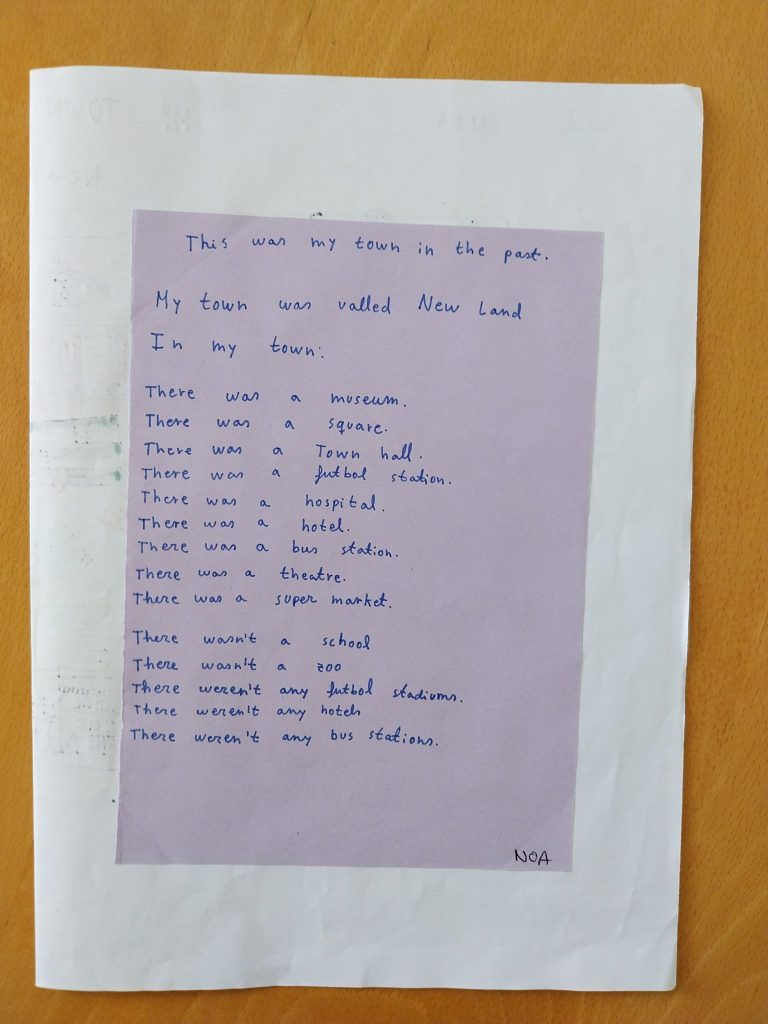 This was my town in the past.
My town was valled New Land
In my town:
There was a museum.
There was a square.
There was a Town hall.
There was a futbol station.
There was a hospital.
There was a hotel.
There was a bus station.
There was a theatre.
There was a super market.
There wasn't a school
There wasn't a zoo
There weren't any futbol stadiums.
There weren't any hotels
There weren't any bus stations.
NOA